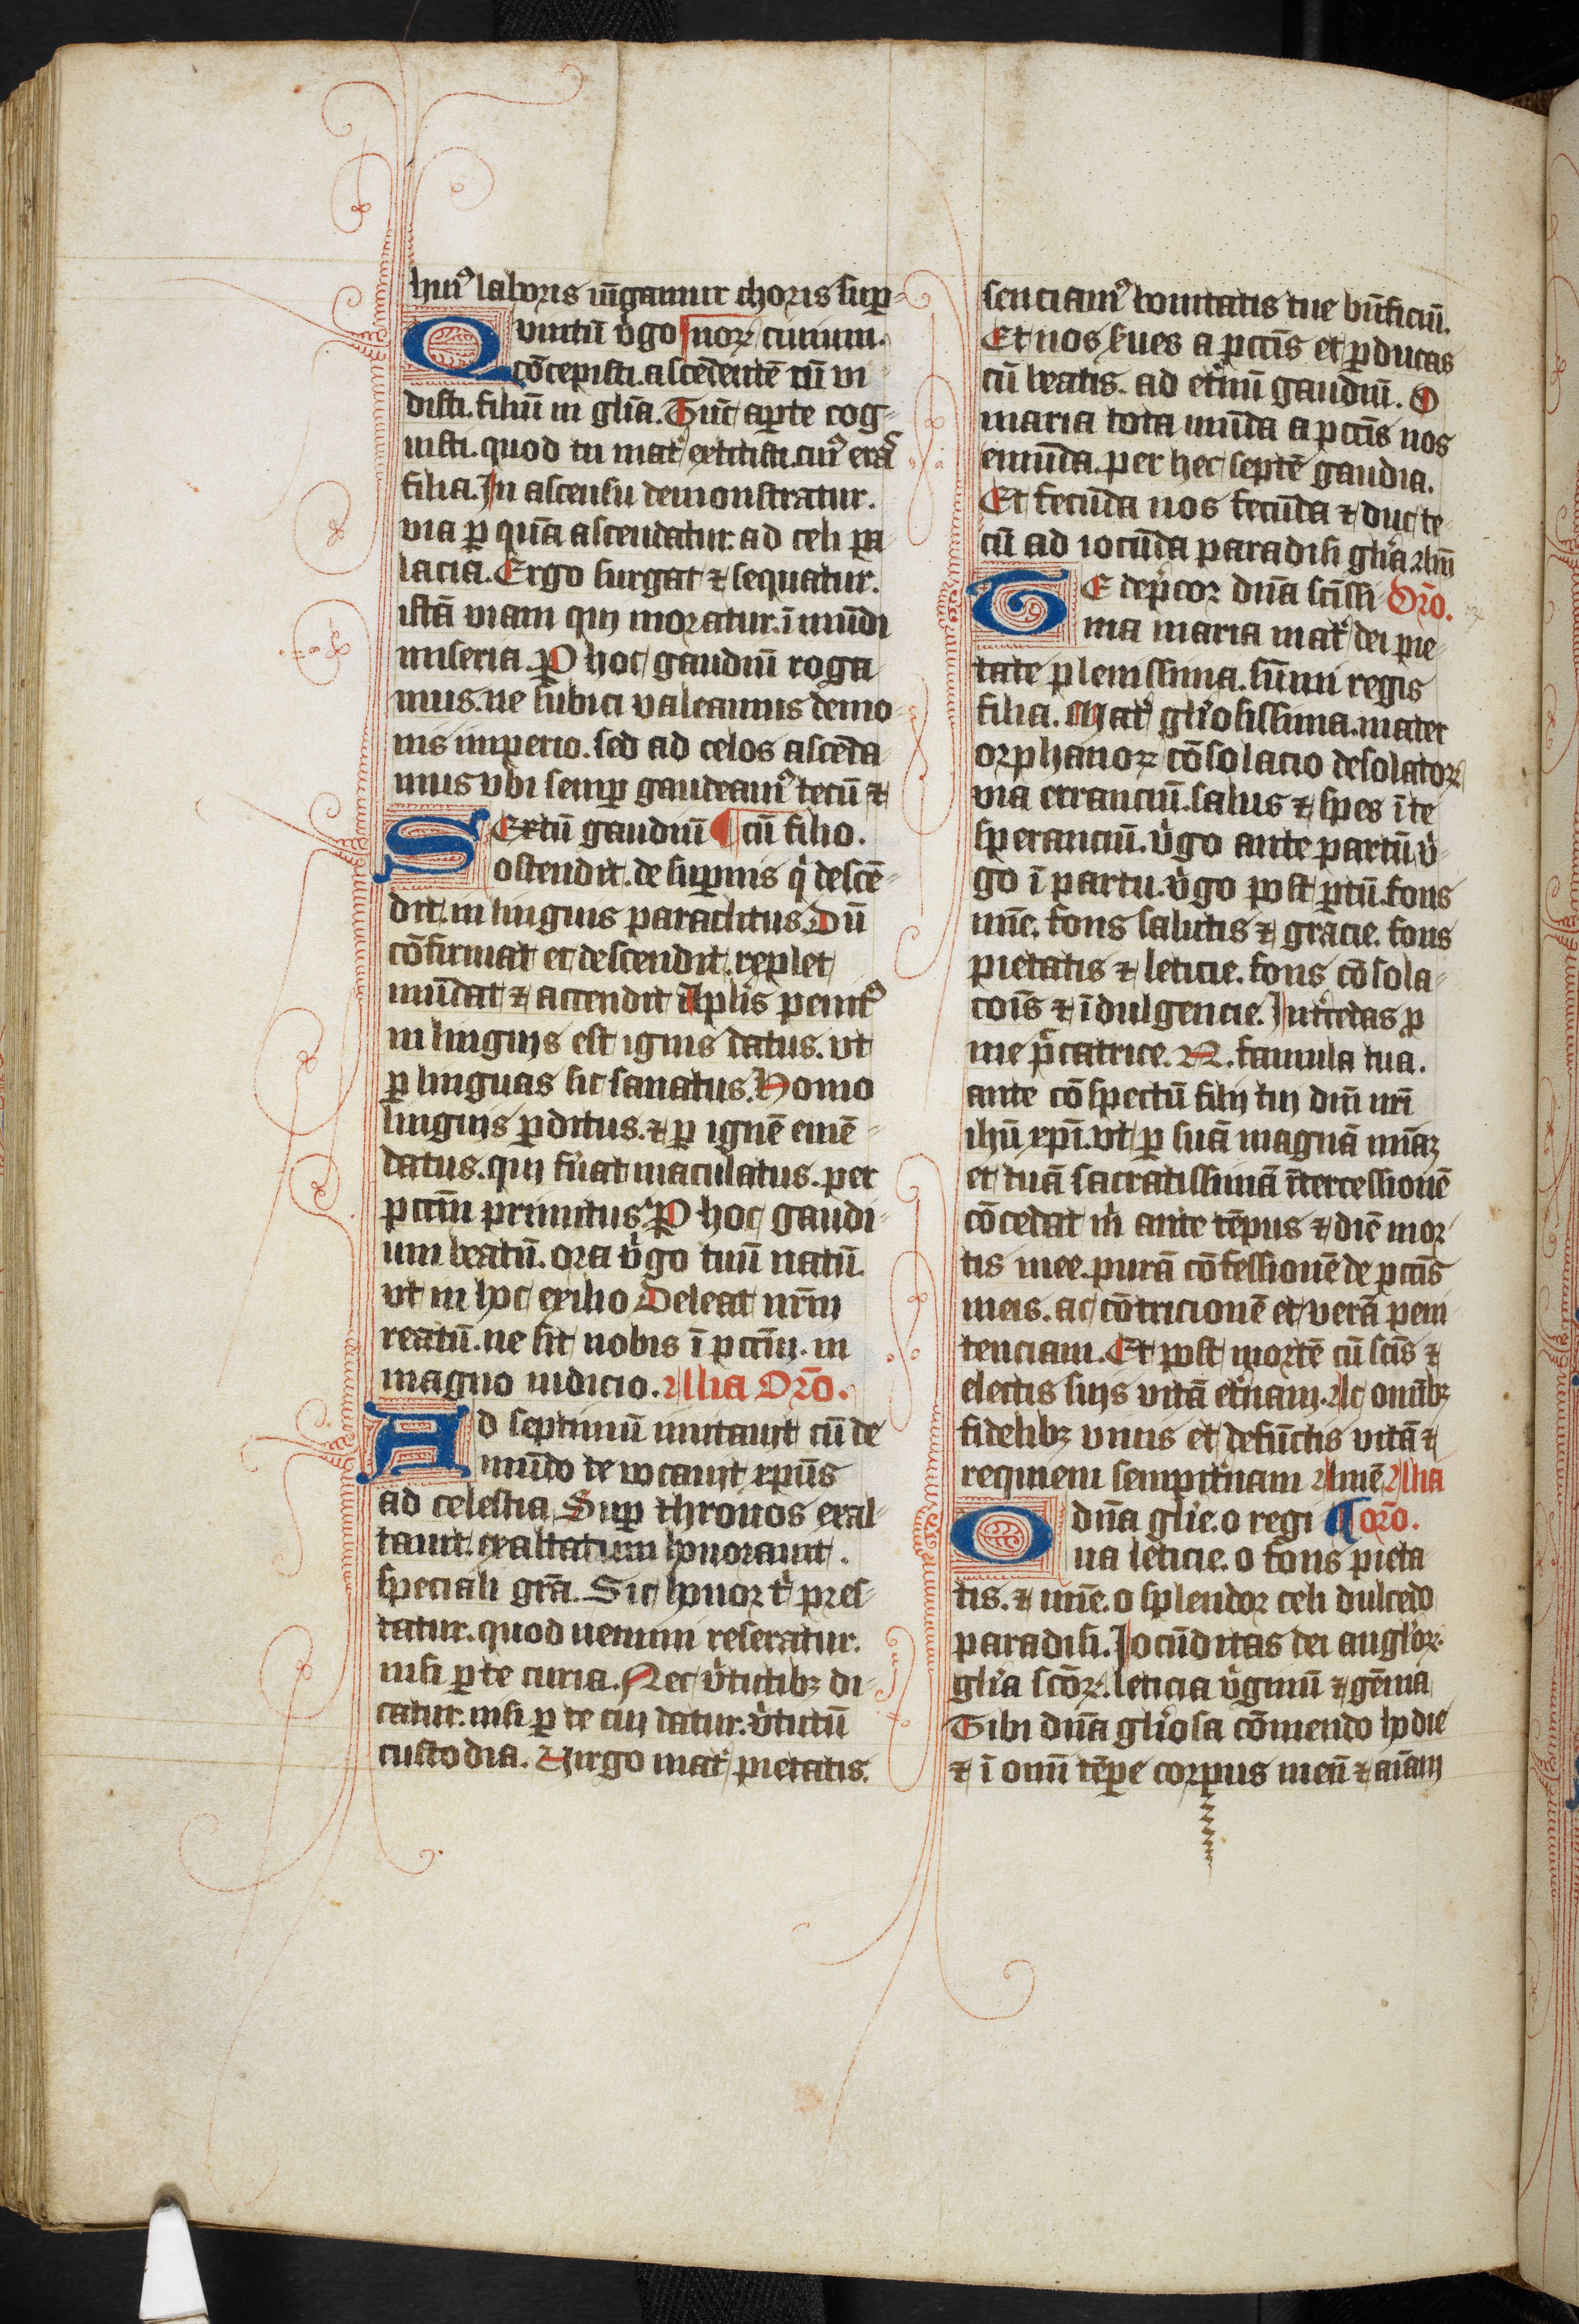 huiꝰ laboris iūgamur choris suꝑ-
Quintū v̓go noꝝ ciuium.
cōcepisti. ascēdentē cū vi-
disti. filiū in gl̄ia. Tūc aꝑte cog-
uisti. quod tu mat̓ extitisti. cuiꝰ eras
filia. In ascensu demonstratur.
via ꝑ quā ascendatur. ad celi pa-
lacia. Ergo surgat ⁊ sequatur.
istā viam qui moratur. ī mūdi
miseria. Ꝑ hoc gaudiū roga-
mus. ne subici valeamus demo-
nis imperio. sed ad celos ascēda-
mus vbi semꝑ gaudeamꝰ tecū ⁊
SExtū gaudiū ¶ cū filio.
ostendit. de suꝑnis q̓ descē-
dit. in linguis paraclitus. Dū
cōfirmat et descendit. replet
mūdat ⁊ accendit Apl̄is penitꝰ
in linguis est ignis datus. vt
ꝑ linguas sic sanatus. Homo
linguis ꝑditus. ⁊ ꝑ ignē emē-
datus. qui fu̓at maculatus. per
pccm̄ primitus. Ꝑ hoc gaudi-
um beatū. ora v̓go tuū natū.
vt in hoc exilio Deleat nr̄m
reatū. ne sit nobis ī pccm̄. in
magno iudicio. Alia Oro̅.
AD septimū inuitauit cū de
mūdo te vocauit xpūs
ad celestia. Suꝑ thronos exal-
tauit. exaltatum honorauit.
speciali grā. Sic honor t̓ pres-
tatur. quod nemini reseratur.
nisi ꝑ te curia. Nec v̓tutibꝫ di-
catur. nisi ꝑ te cui datur. v̓tutū
custodia. Virgo mat̓ pietatis.
senciamꝰ bonitatis tue bn̄ficiū.
Et nos s̓ues a pcc̄is et ꝑducas
cū beatis. ad et̓nū gaudiū. O
maria tota mūda a pcc̄is nos
emūda. per hec septē gaudia.
Et fecūda nos fecūda ⁊ duc te-
cū ad iocūda paradisi gl̄ia Am̄
TE dep̓cor dn̄a sc̄issi- Oro̅.
ma maria mat̓ dei pie-
tate plenissima. sūmi regis
filia. Mat̓ gl̓iosissima. mater
orphanoꝝ cōsolacio desolatoꝝ
via erranciū. salus ⁊ spes ī te
speranciū. v̓go ante partū v̓-
go ī partu. v̓go post ꝑtū. fons
mīe. fons salutis ⁊ gracie. fons
pietatis ⁊ leticie. fons cōsola-
cōis ⁊ īdulgencie. Int̓cedas ꝑ
me p̓catrice. N. famula tua.
ante cōspectū filij tui dn̄i nr̄i
ihū xp̄i. vt ꝑ suā magnā mīaꝫ
et tuā sacratissimā ītercessionē
cōcedat m̓ ante tēpus ⁊ diē mor-
tis mee. purā cōfessionē de pcc̄is
meis. ac cōtricionē et verā peni-
tenciam. Et post mortē cū sc̄is ⁊
electis suis vitā et̓nam. Ac om̄ibꝫ
fidelibꝫ viuis et defūctis vitā ⁊
requiem sempit̓nam Amē Alia
O dn̄a gl̓ie. o regi- ¶ oro̅.
na leticie. o fons pieta-
tis. ⁊ mīe. o splendor celi dulcedo
paradisi. Iocūditas dei angl̓oꝝ.
gl̓ia sc̄oꝝ. leticia v̓ginū ⁊ gēma
Tibi dn̄a gl̓iosa cōmendo hodie
⁊ ī om̄i tēꝑe corpus meū ⁊ aīam